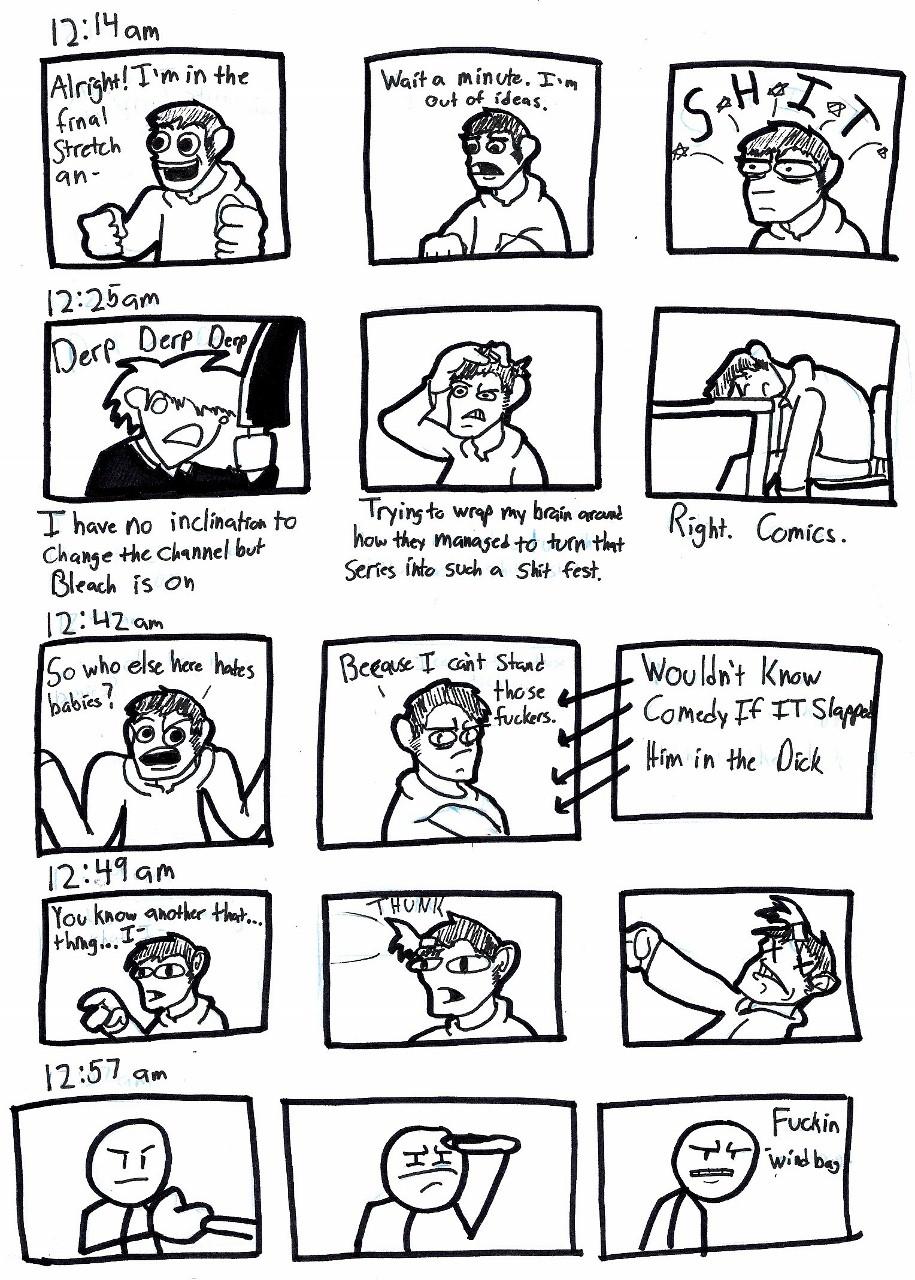 12:14am
Alright! I'm in the
final
Stretch
an-
Wait a minute. I'm
out of ideas.
SHIT
12:25am
Derp Derp Derp
I have no inclination to
Change the Channel but
Bleach is on
Trying to wrap my brain around
how they managed to turn that
Series into such a shit fest.
Right. Comics.
12:42am
So who else here hates
babies?
Because I can't Stand
those
fuckers.
Wouldn't Know
Comedy If IT Slapped
Him in the Dick
12:49am
You know another that...
thing... I-
THUNK
12:57 am
Fuckin
windbag